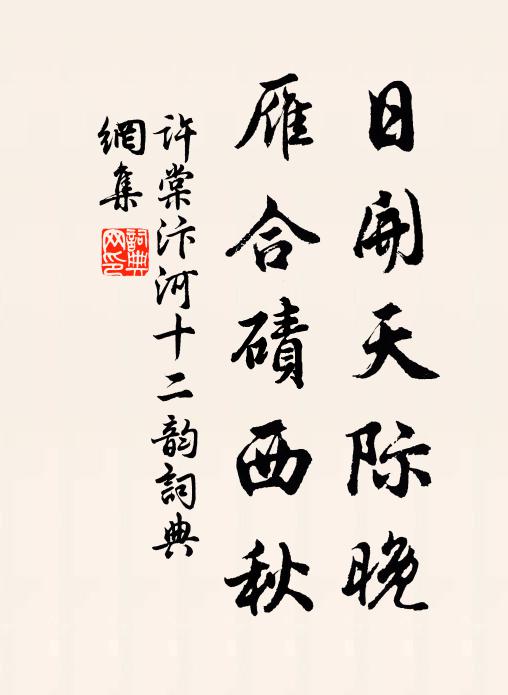 日開天际晚
雁合磧西秋
许棠汴河十二韵詞典
網集
詞典
网印